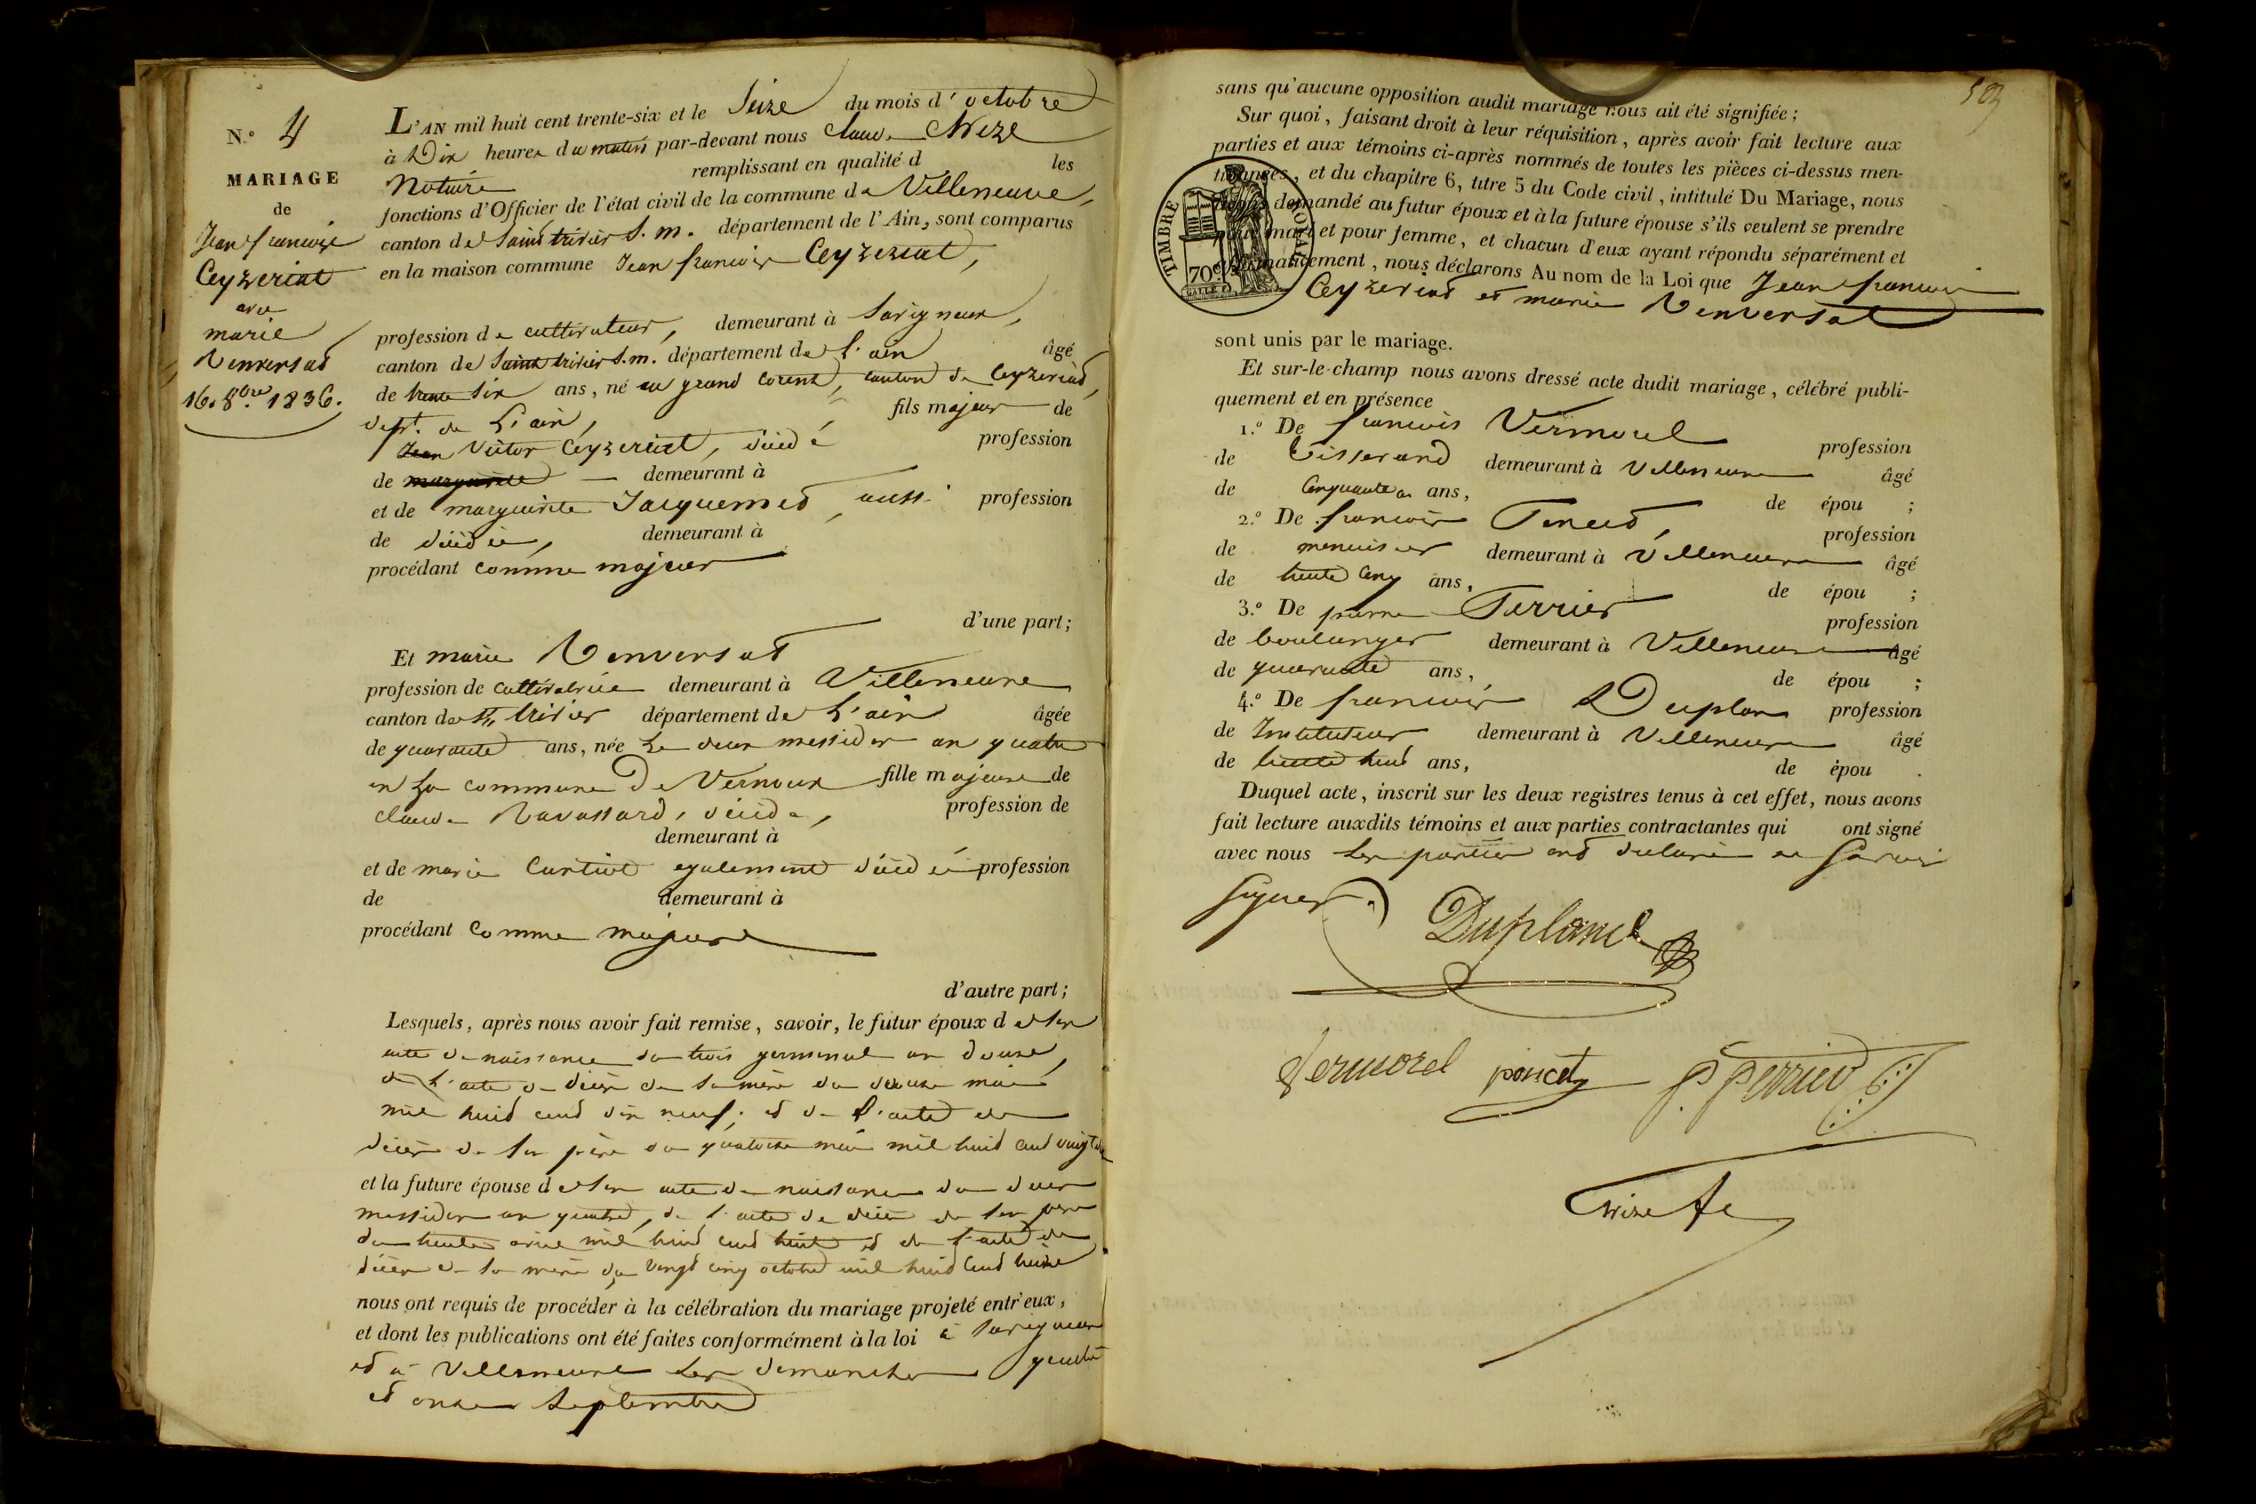 N.o 4
MARIAGE
de
Jean françois
Ceyzeriat
avec
marie
Renversat
16. 8bre 1836.
L'AN mil huit cent trente-six et le Seize du mois d'octobre
à Dix heures du matin par-devant nous Claude
Notaire remplissant en qualité d les
fonctions d'Officier de l'état civil de la commune de Villeneuve,
canton de Saint trivier S. m. département de l'Ain, sont comparus
en la maison commune Jean françois Ceyzeriat,
profession de cultivateur, demeurant à Savigneux,
canton de Saint trivier S. m. département de l'ain âgé
de trente six ans, né au grand Corent, canton de Ceyzeriat,
dépt. de L'ain, fils majeur de
Jean Victor Ceyzeriat, décédé profession
de marguerite demeurant à
et de marguerite Jacquemet, aussi profession
de décédée, demeurant à
procédant comme majeur
d'une part;
Et marie Renversat
profession de cultivatrice demeurant à Villeneuve
canton de St. trivier département de L'ain âgée
de quarante ans, née Le deux messidor an quatre
en La commune De Vernoux fille majeure de
claude Ravassard, décédé, profession de
demeurant à
et de marie Curtiot egalement décédée profession
de demeurant à
procédant Comme majeure
d'autre part;
Lesquels, après nous avoir fait remise, savoir, le futur époux de son
acte de naissance du trois germinal an douze,
de L'acte de décès de sa mère du douze mai
mil huit cent dix neuf; et de l'acte de
décès de son père du quatorze mai mil huit cent vingt
et la future épouse de son acte de naissance du deux
messidor an quatre, de l'acte de décès de son père
du trente avril mil huit cent huit et de l'acte de
décès de sa mère du vingt cinq octobre mil huit Cent treize
nous ont requis de procéder à la célébration du mariage projeté entr'eux,
et dont les publications ont été faites conformément à la loi à Savigneux
et à Villeneuve Les dimanches quatre
et onze Septembre
sans qu'aucune opposition audit mariage nous ait été signifiée;
Sur quoi, faisant droit à leur réquisition, après avoir fait lecture aux
parties et aux témoins ci-après nommés de toutes les pièces ci-dessus men-
tionnées, et du chapitre 6, titre 5 du Code civil, intitulé Du Mariage, nous
avons demandé au futur époux et à la future épouse s'ils veulent se prendre
pour mari et pour femme, et chacun d'eux ayant répondu séparément et
affirmativement, nous déclarons Au nom de la Loi que Jean françois
Ceyzeriat et marie Renversat
TIMBRE ROYAL
70c
sont unis par le mariage.
Et sur-le-champ nous avons dressé acte dudit mariage, célébré publi-
quement et en présence
1.o De françois Vermorel profession
de tisserand demeurant à Villeneuve âgé
de Cinquante ans, de épou ;
2.o De françois Poncet, profession
de menuisier demeurant à Villeneuve âgé
de trente Cinq ans, de épou ;
3.o De pierre Perrier profession
de boulanger demeurant à Villeneuve âgé
de quarante ans, de épou ;
4.o De françois Duplan profession
de Instituteur demeurant à Villeneuve âgé
de trente huit ans, de épou .
Duquel acte, inscrit sur les deux registres tenus à cet effet, nous avons
fait lecture auxdits témoins et aux parties contractantes qui ont signé
avec nous Les parties ont déclaré ne Savoir
Signer.
Duplan
Vermorel poncet P. Perrier